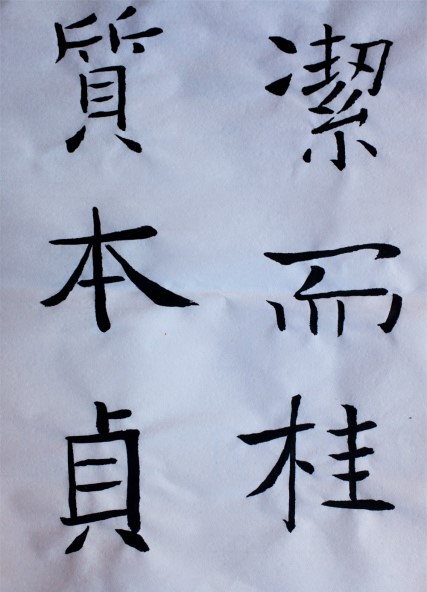 㓗而桂
質本貞